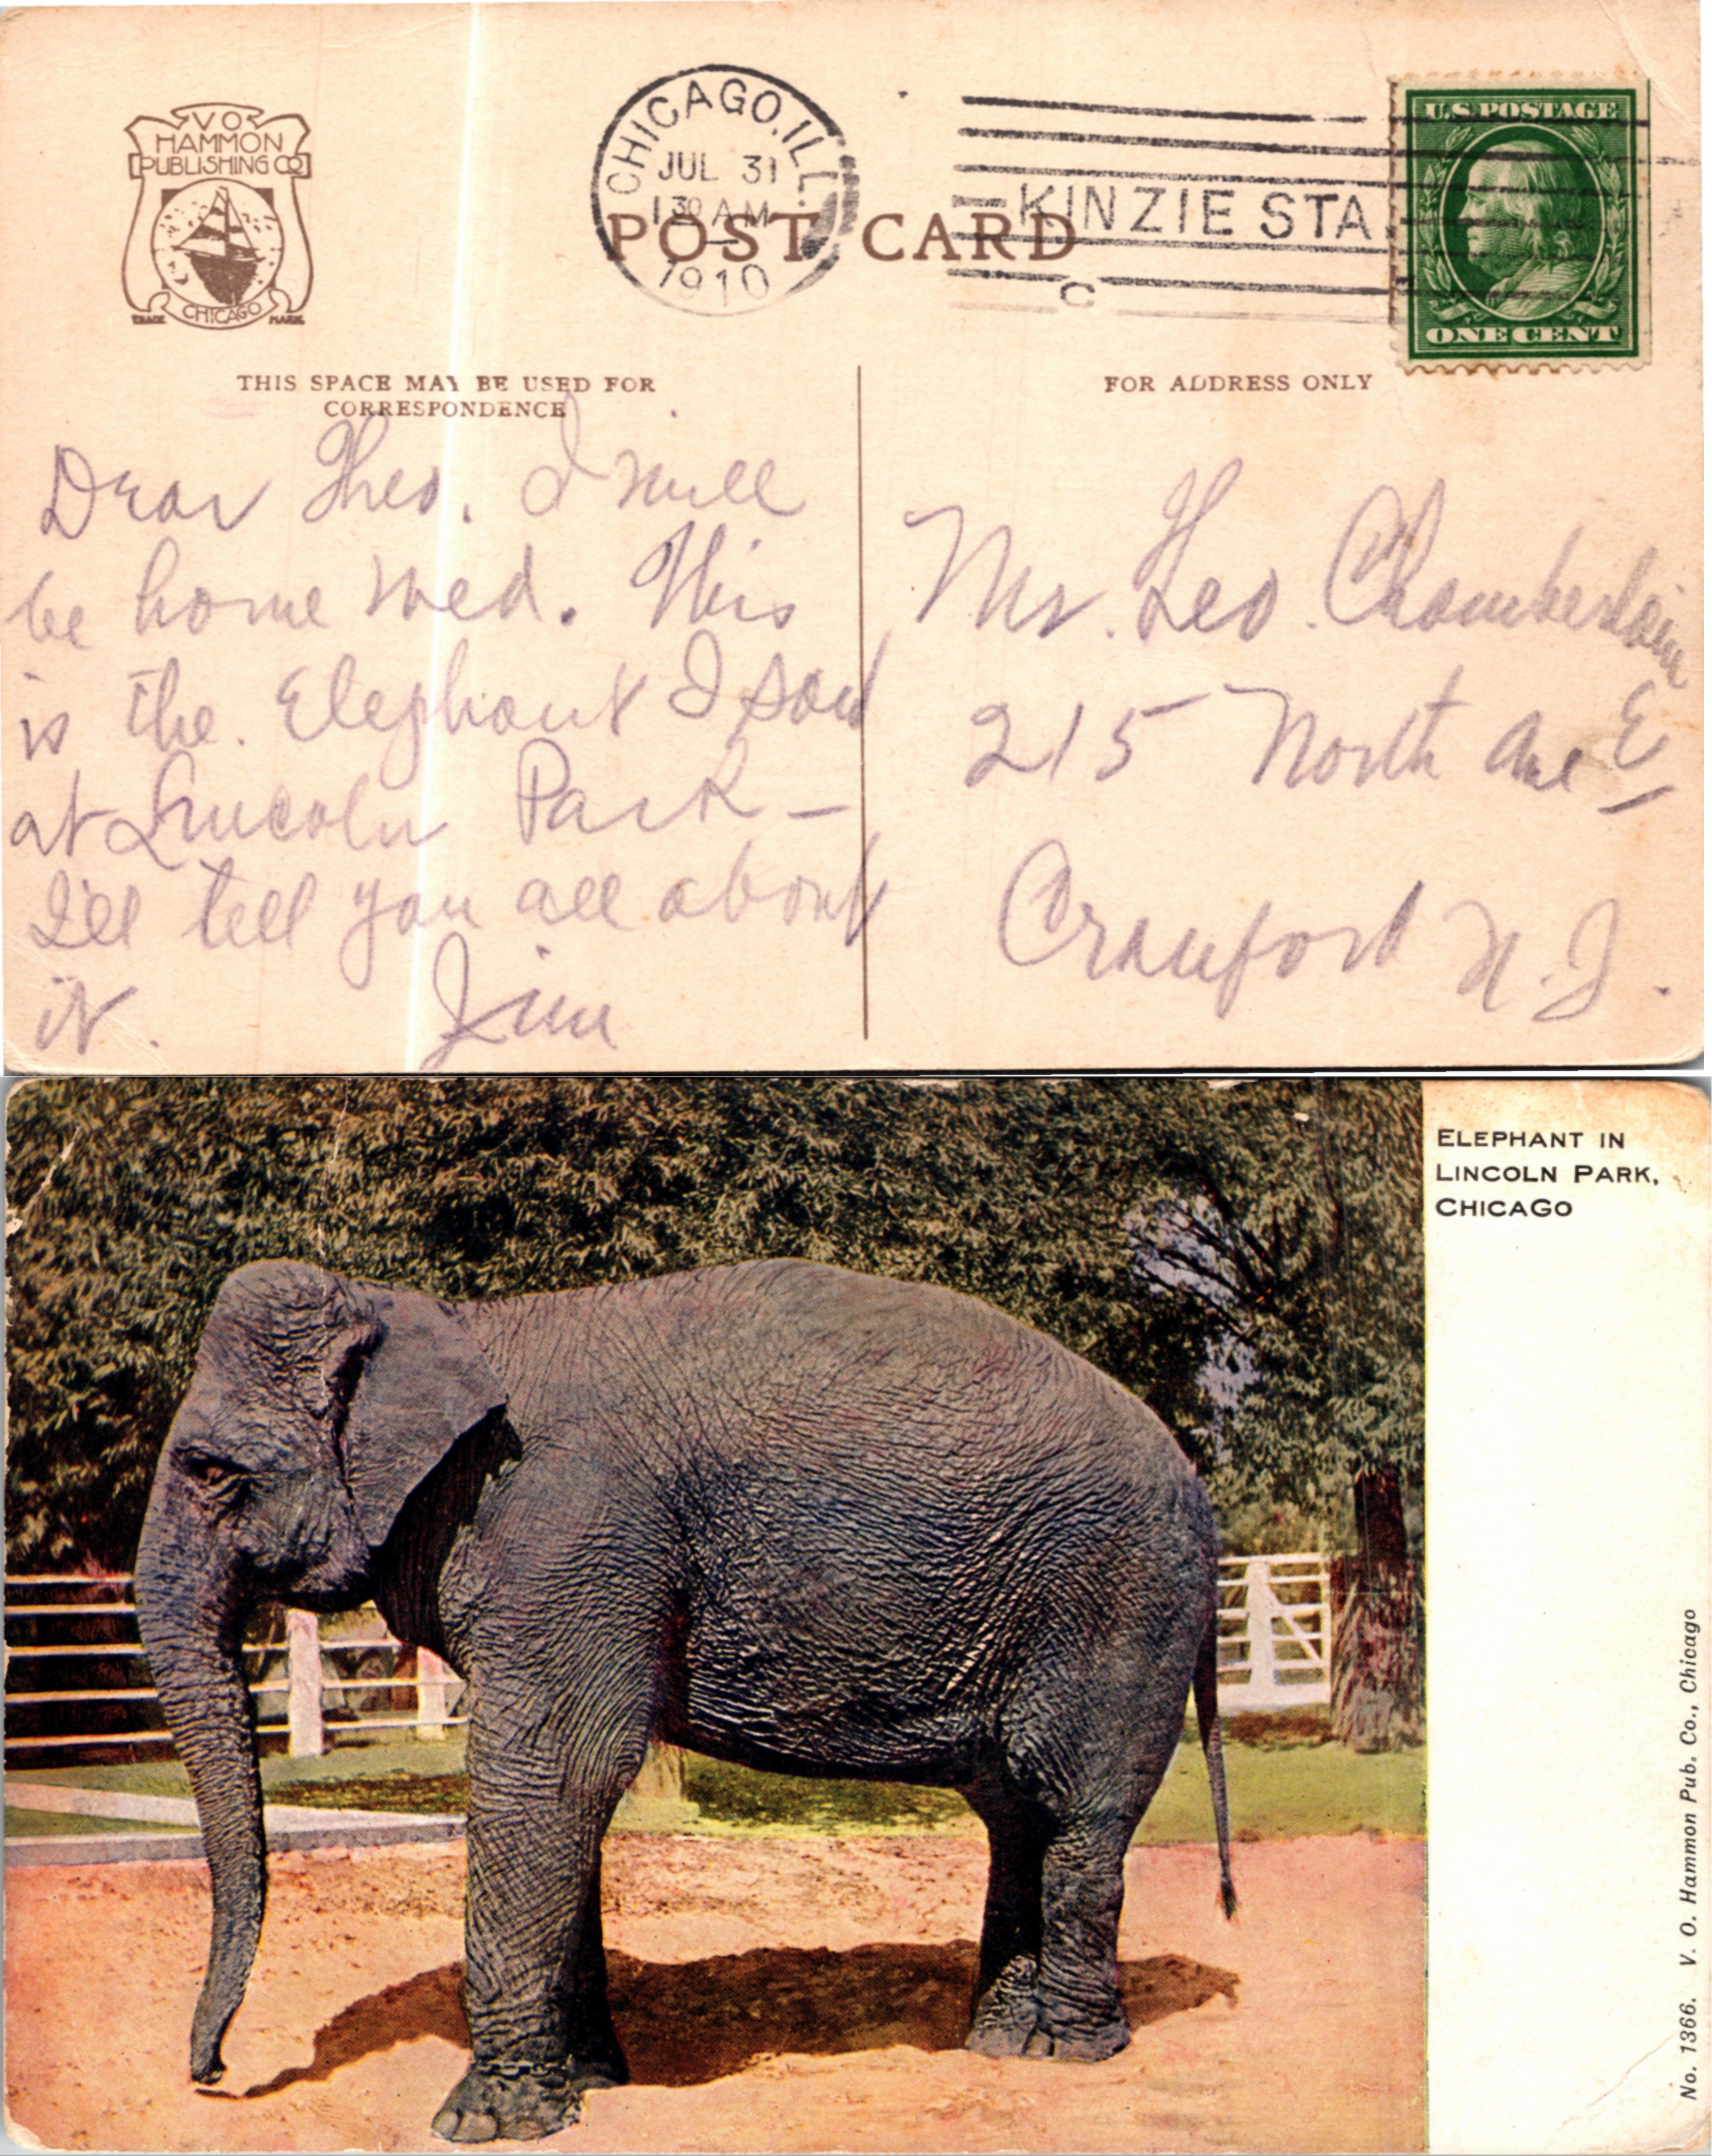 V O
HAMMON
PUBLISHING CO
CHICAGO
TRADE MARK
CHICAGO, ILL.
JUL 31
1 30 AM
1910
KINZIE STA.
C
POST CARD
U.S. POSTAGE
ONE CENT
THIS SPACE MAY BE USED FOR
CORRESPONDENCE
FOR ADDRESS ONLY
Dear Theo. I will
be home Wed. This
is the Elephant I saw
at Lincoln Park —
I'll tell you all about
it. Jim
Mr. Leo. Chamberlain
215 North Ave E
Cranford N.J.
ELEPHANT IN
LINCOLN PARK,
CHICAGO
No. 1366. V. O. Hammon Pub. Co., Chicago